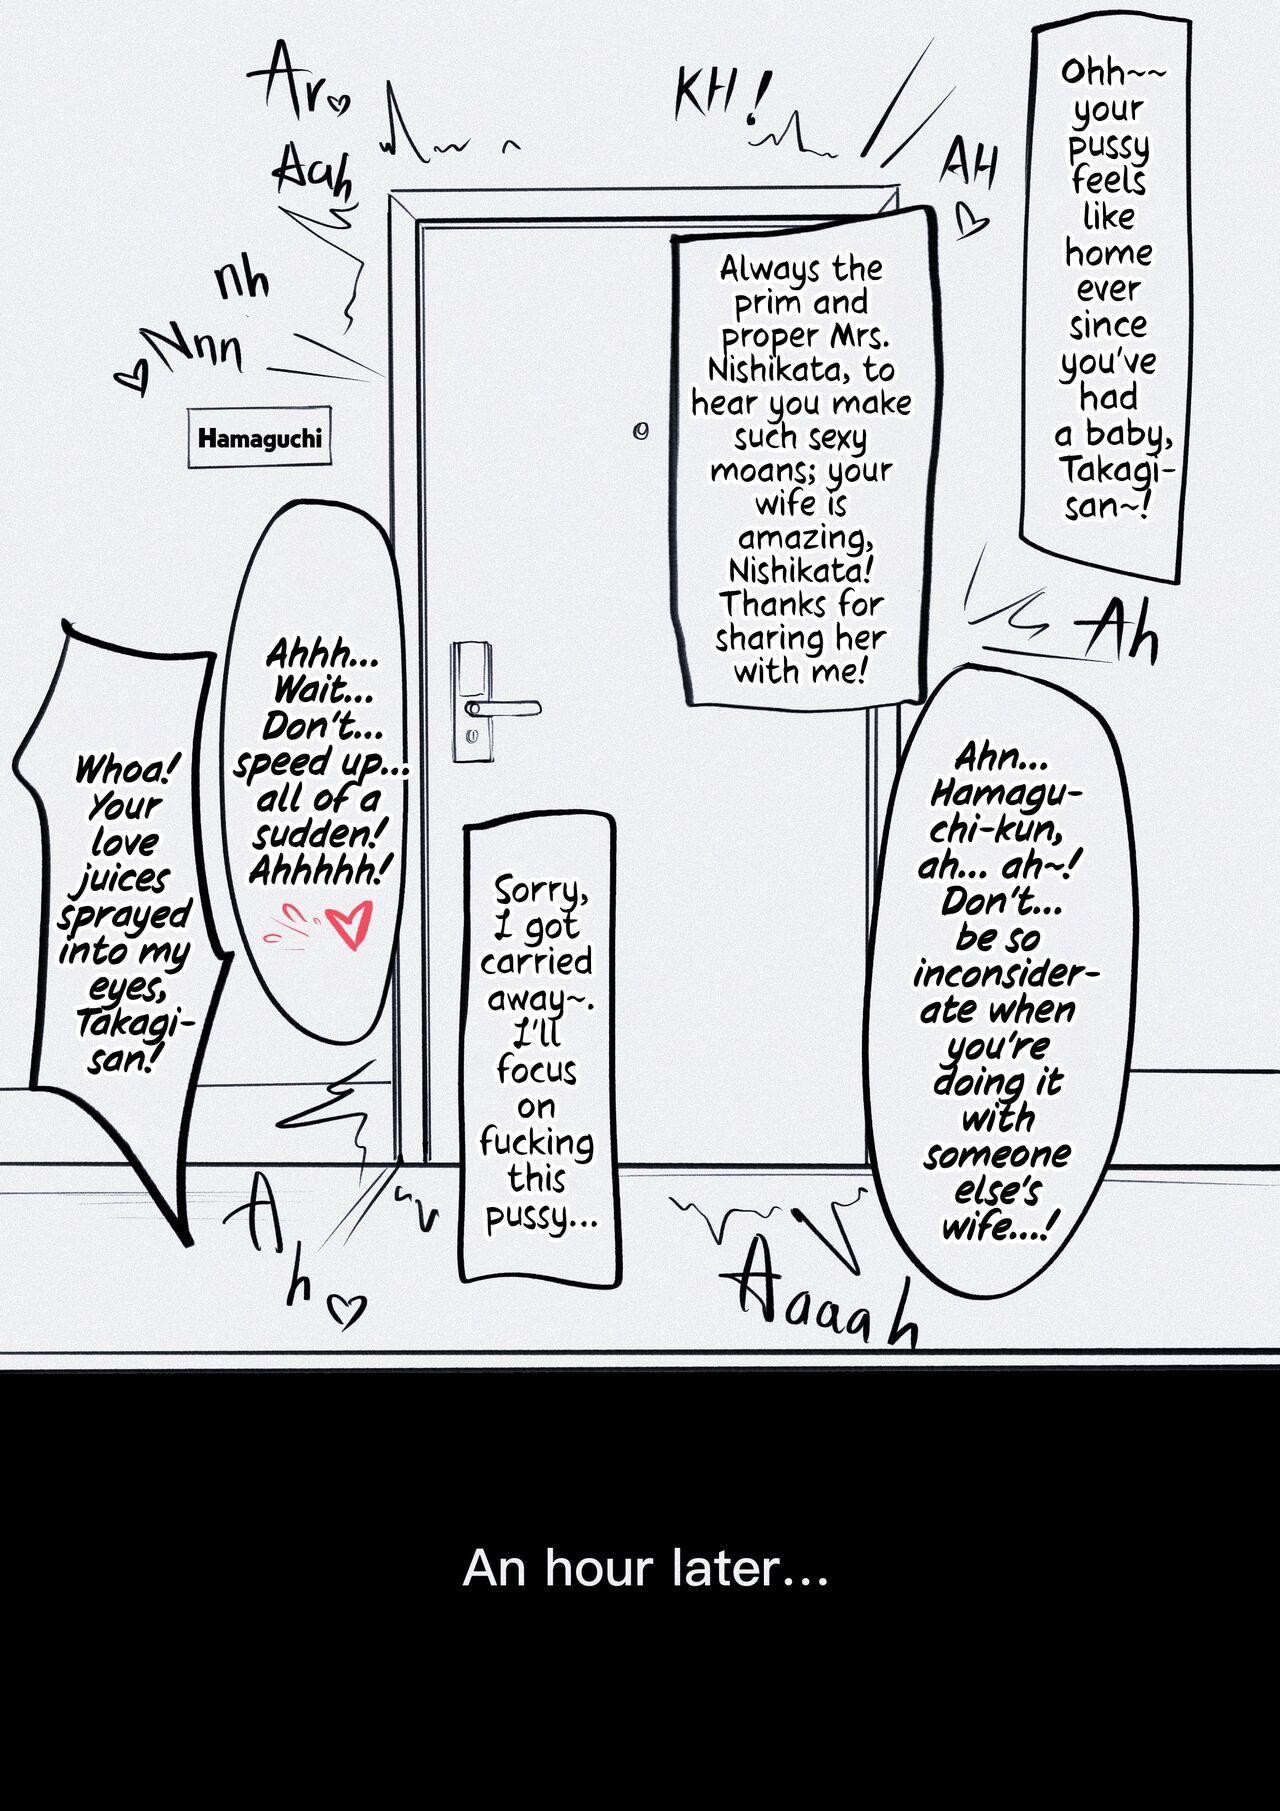 Ohh~~
your
pussy
feels
like
home
ever
since
you've
had
a baby,
Takagi-
san~!
KH!
AH
Always the
prim and
proper Mrs.
Nishikata, to
hear you make
such sexy
moans; your
wife is
amazing,
Nishikata!
Thanks for
sharing her
with me!
Ar
Aah
nh
Nnn
Hamaguchi
Ah
Ahn...
Hamagu-
chi-kun,
ah... ah~!
Don't...
be so
inconsider-
ate when
you're
doing it
with
someone
else's
wife...!
Sorry,
I got
carried
away~.
I'll
focus
on
fucking
this
pussy...
Ahhh...
Wait...
Don't...
speed up...
all of a
sudden!
Ahhhhh!
Whoa!
Your
love
juices
sprayed
into my
eyes,
Takagi-
san!
Ah
Aaaah
An hour later...